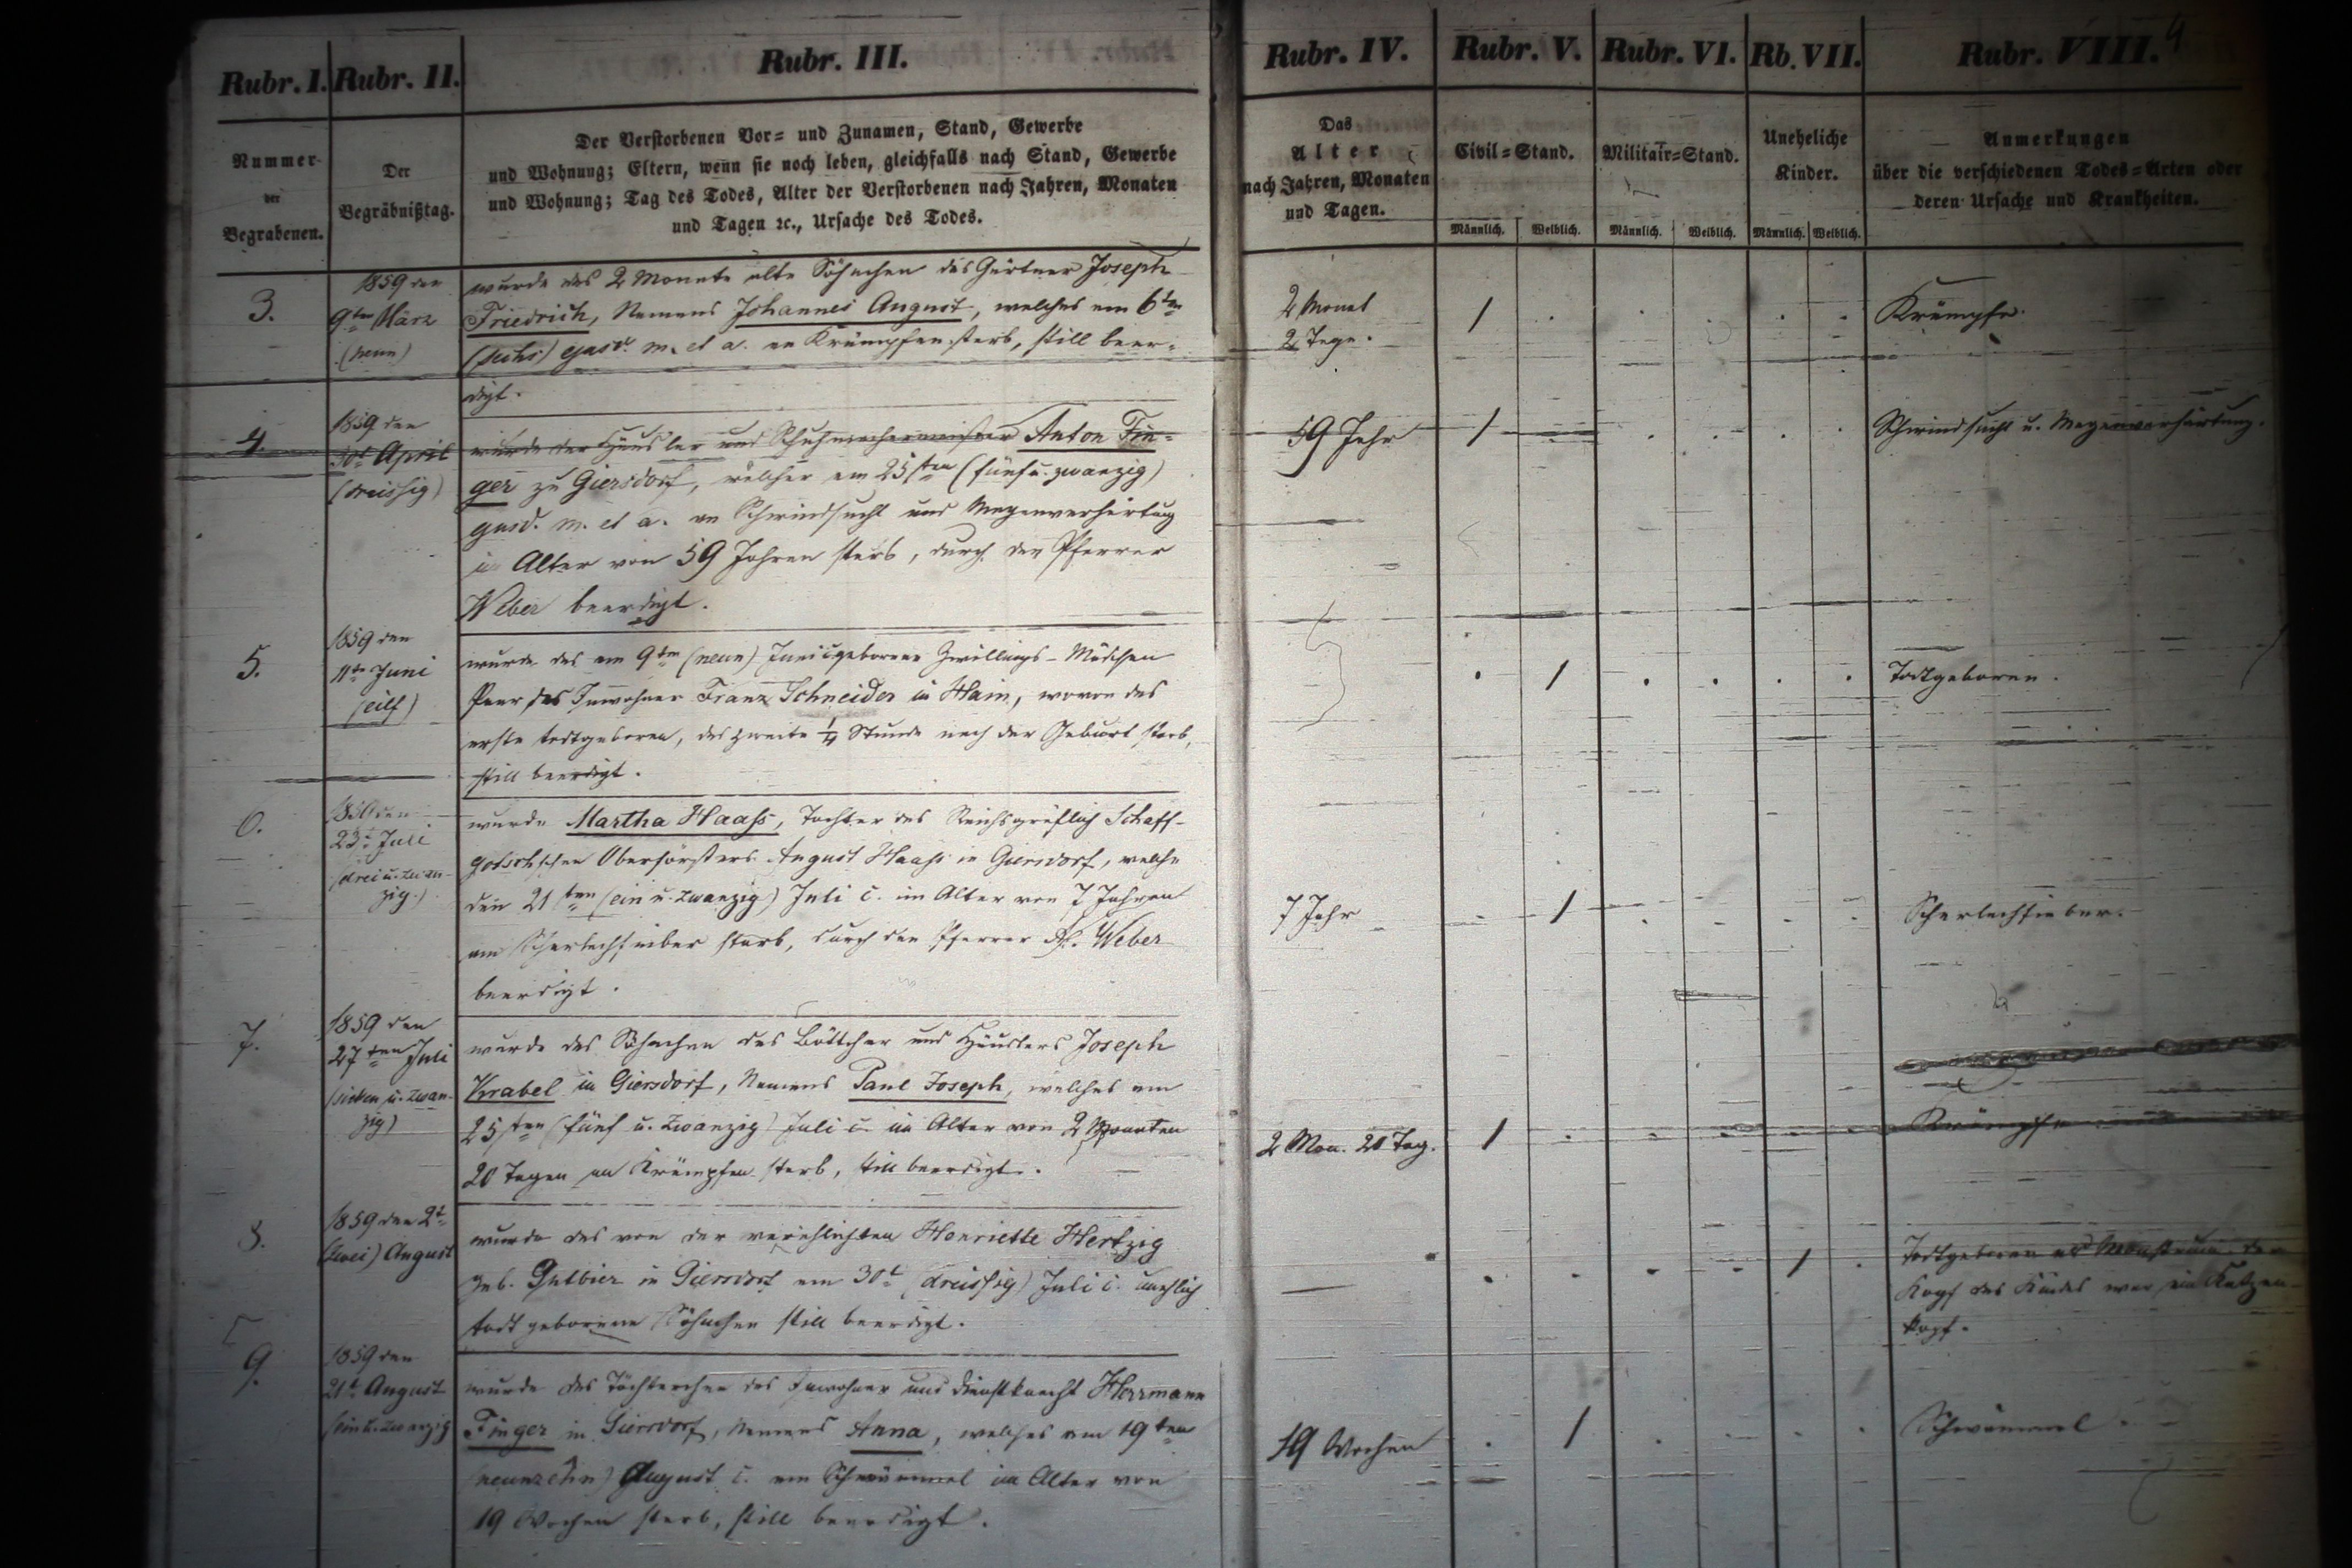 Rubr. I. Rubr. II. Rubr. III. Rubr. IV. Rubr. V. Rubr. VI. Rb. VII. Rubr. VIII. 4
Nummer
der
Begrabenen.
Der
Begräbnißtag.
Der Verstorbenen Vor= und Zunamen, Stand, Gewerbe
und Wohnung; Eltern, wenn sie noch leben, gleichfalls nach Stand, Gewerbe
und Wohnung; Tag des Todes, Alter der Verstorbenen nach Jahren, Monaten
und Tagen ꝛc., Ursache des Todes.
Das
Alter
nach Jahren, Monaten
und Tagen.
Civil=Stand.
Männlich. Weiblich.
Militair=Stand.
Männlich. Weiblich.
Uneheliche
Kinder.
Männlich. Weiblich.
Anmerkungen
über die verschiedenen Todes=Arten oder
deren Ursache und Krankheiten.
3.
1859 den
9ten März
(neun)
wurde das 2 Monate alte Söhnchen des Gärtner Joseph
Friedrich, Namens Johannes August, welches am 6ten
(sechs) ejusd. m. et a. an Krämpfen starb, still beer=
digt.
2 Monat
2 Tage.
1
Krämpfe.
4.
1859 den
30t April
(dreissig)
wurde der Häusler und Schuhmachermeister Anton Fin=
ger zu Giersdorf, welcher am 25sten (fünf u. zwanzig)
ejusd. m. et a. an Schwindsucht und Magenverhärtung
im Alter von 59 Jahren starb, durch den Pfarrer
Weber beerdigt.
59 Jahr
1
Schwindsucht u. Magenverhärtung.
5.
1859 den
11te Juni
(eilf)
wurde das am 9ten (neun) Juni c. geborene Zwillings-Mädchen
Paar des Inwohner Franz Schneider in Hain, wovon das
erste todtgeboren, das zweite 1/4 Stunde nach der Geburt starb,
still beerdigt.
1
Todtgeboren.
6.
1859 den
23t Juli
(drei u. zwan-
zig.)
wurde Martha Haaß, Tochter des Reichsgräflich Schaff-
gotschschen Oberförsters August Haaß in Giersdorf, welche
den 21sten (ein u. zwanzig) Juli c. im Alter von 7 Jahren
am Scharlachfieber starb, durch den Pfarrer Weber
beerdigt.
7 Jahr
1
Scharlachfieber.
7.
1859 den
27ten Juli
(sieben u. zwan-
zig)
wurde das Söhnchen des Böttcher und Häuslers Joseph
Krabel in Giersdorf, Namens Paul Joseph, welches am
25sten (fünf u. zwanzig) Juli c. im Alter von 2 Monaten
20 Tagen an Krämpfen starb, still beerdigt.
2 Mon. 20 Tag.
1
Krämpfe
8.
1859 den 2t
(zwei) August
wurde das von der verehlichten Henriette Hertzig
geb. in Giersdorf am 30t (dreissig) Juli c. unehlich
todt geborene Söhnchen still beerdigt.
1
Todtgeboren als Monstrum. Der
Kopf des Kindes war ein Katzen-
kopf.
9.
1859 den
21t August
(ein u. zwanzig
wurde das Töchterchen des Inwohner und Dienstknecht Herrmann
Finger in Giersdorf, Namens Anna, welches am 19ten
(neunzehn) August c. am Schwämmel im Alter von
19 Wochen starb, still beerdigt.
19 Wochen
1
Schwämmel